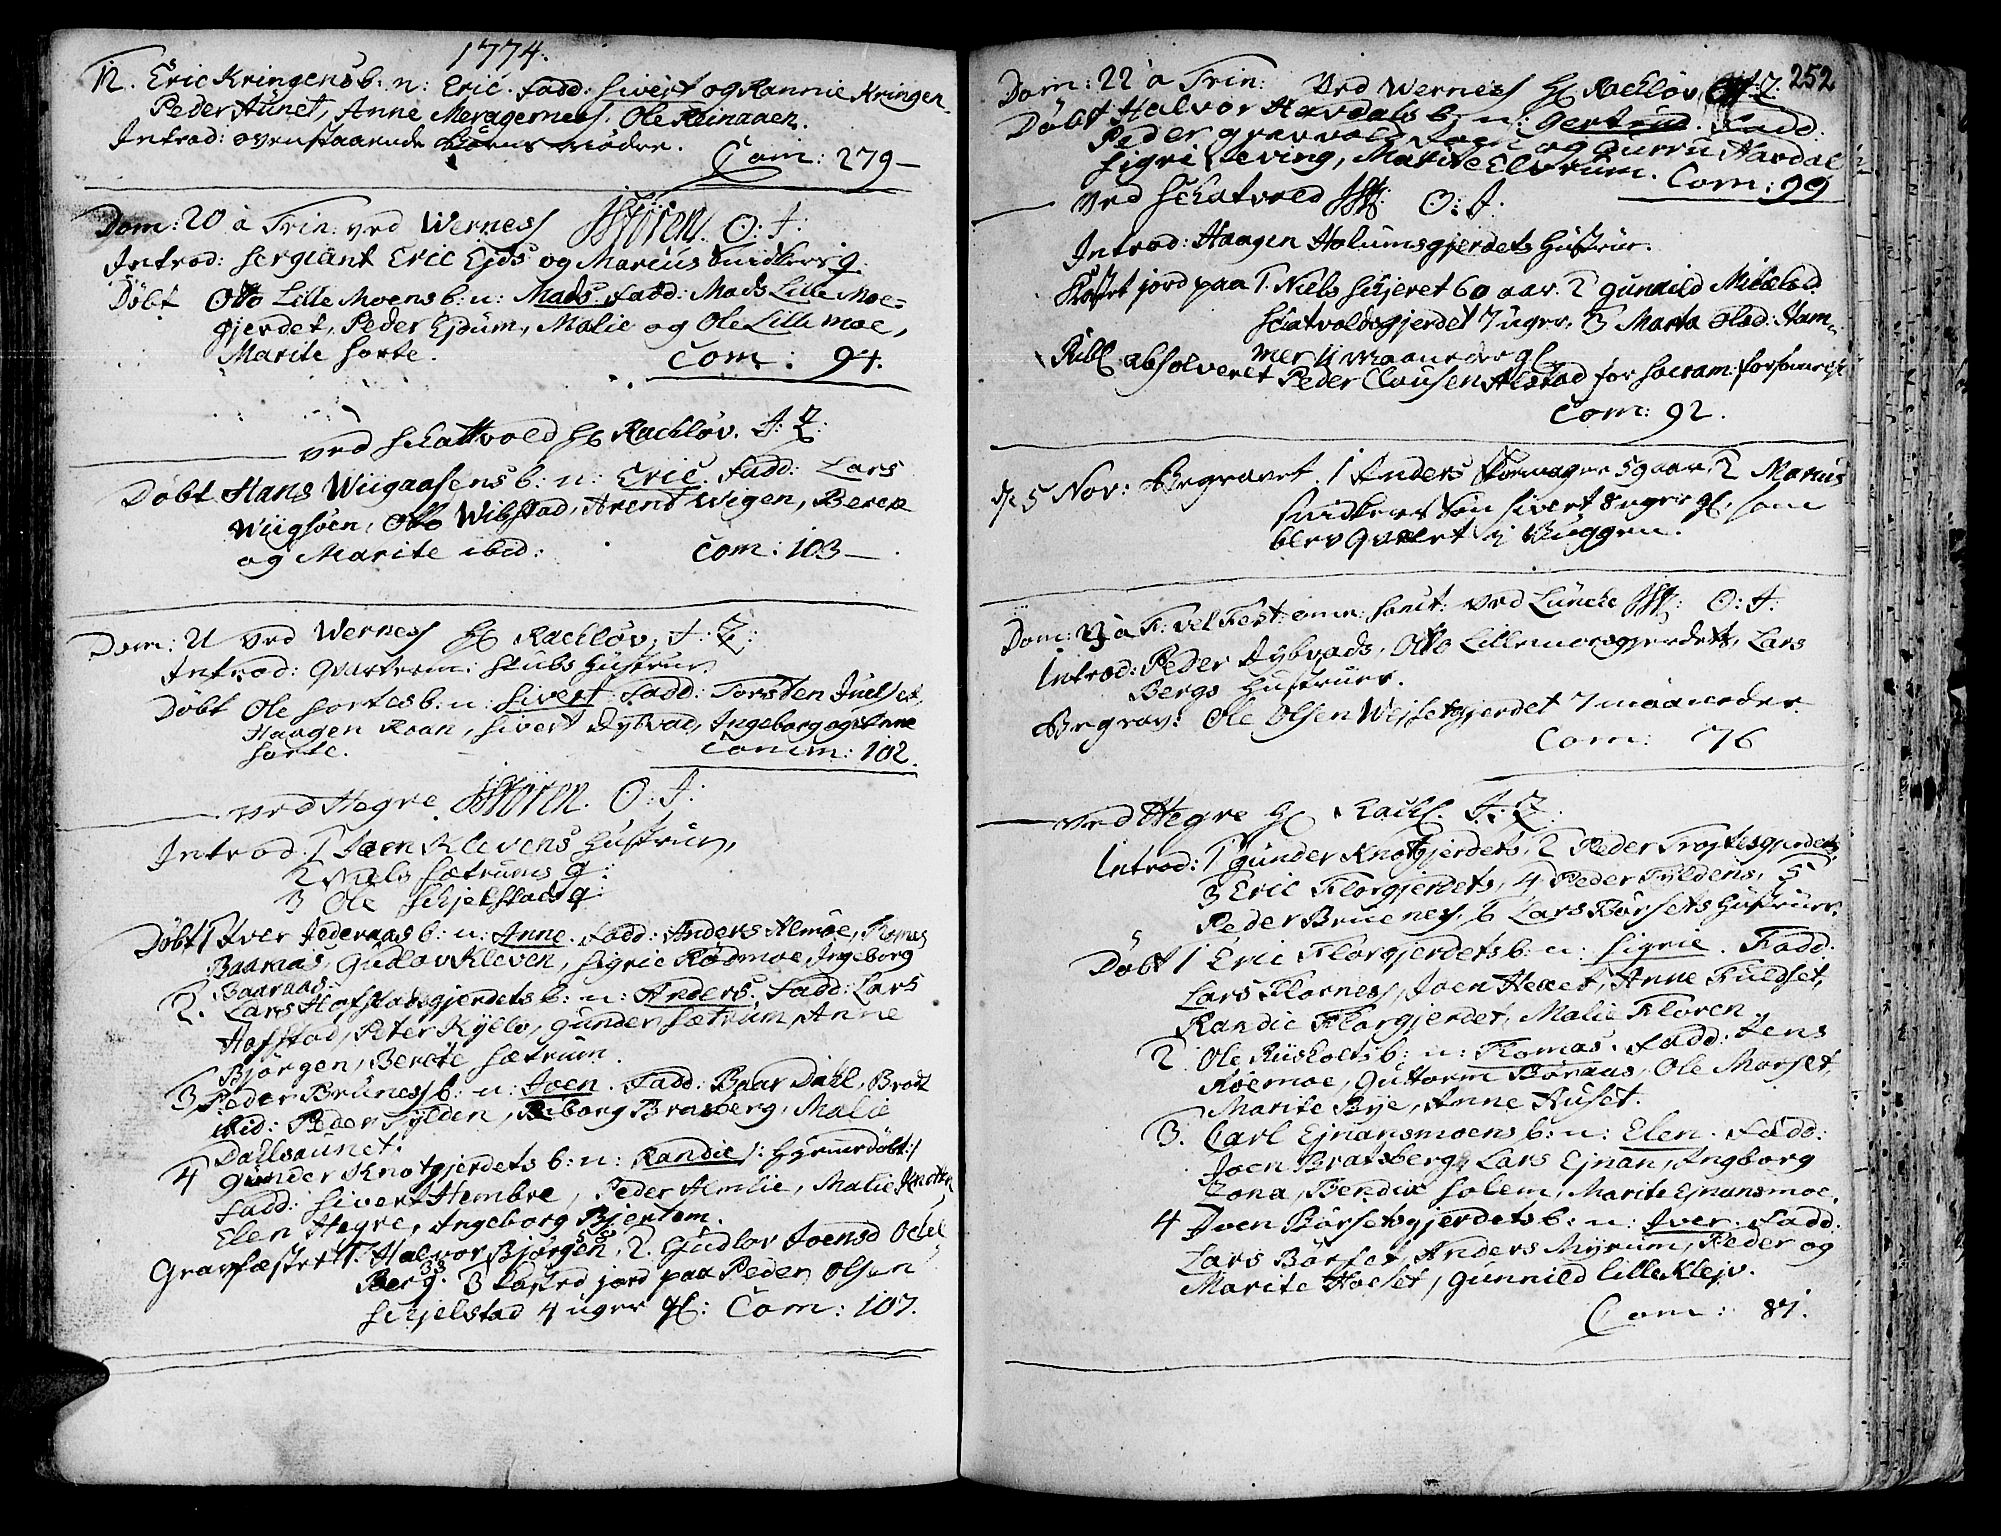 1774.
12. Eric Kringens b: n: Eric. Fadd: Sivert og Rannie Kringen
Peder Aunet, Anne Meragernes, Ole Reinaaen.
Introd: ovenstaaende Børns mødre.
Com: 279 —
Dom: 20 a Trin: ved Wernes O: T:
Introd: Sergiant Eric Ejds og Marcus Snidkers q.
Døbt Otto Lille Moens b: n: Mads. Fadd: Mads Lille Moe-
gjerdet, Peder Ejdum, Malie og Ole Lille moe,
Marite Sorte.
Com: 94.
ved Schattvold H Rachløv. T: T:
Døbt Hans Wiigaasens b: n: Eric. Fadd: Lars
Wiigsøen, Otto Wibstad, Arent Wigen, Berete
og Marite ibid:
Com: 103 —
Dom: 21 ved Werness H Rachløv. T: T:
Introd: Qvarterm: Stubs Hustrue
Døbt Ole Sortes b: n: Sivert. Fadd: Torsten Juelset,
Haagen Roan, Sivert Dybvad, Ingeborg og Anne
Sorte.
Comm: 102.
ved Hegre O: T:
Introd. 1 Joen Klevens Hustrue,
2 Niels Sætrums q:
3 Ole Schjelstads q
Døbt 1 Iver Jederaas b: n: Anne. Fadd: Anders Almoe, Thomas
Baaraas, Gudlov Kleven, Sigrie Rødmoe, Ingeborg
Baaraas.
2. Lars Hofstadsgjerdets b: n: Anders. Fadd: Lars
Hofstad, Peter Kyllo, Gunder Sætrum, Anne
Bjørgen, Berete Sætrum.
3, Peder Bruness b: n: Joen. Fadd: Baar Dahl, Brodt
ibid: Peder Fylden, Ingborg Brasberg, Malie
Dahlsaunet.
4 Gunder Knotgjerdets b: n: Randie /: Hjemmedøbt:/
Fadd: Sivert Hembre, Peder Almlie, Malie Knotten
Elen Hegre, Ingeborg Bjertem.
Gravfæstet 1. Halvor Bjørgen, 2. Gudlov Joensd
Berg. 3 Kasted jord paa Peder Olsen
Schjelstad 4 uger gl: Com: 107.
252
Dom: 22 a Trin: Ved Werness H Rachløv T: T.
Døbt Halvor Havdals b: n: Gertrud. Fadd:
Peder Græsvold, og Gurru Havdal
Sigri Leving, Marite Elvrum. Com: 99
ved Schatvold O: T.
Introd: Haagen Holumsgjerdets Hustrue.
Kastet jord paa 1. Niels Schjeret 60 aar. 2 Gunnild Mikelsd.
Schatvoldsgjerdet 7 uger, 3 Marta Olsd: Ham-
mer 4 maaneder gl.
Publ: absolveret Peder Clausen Alstad for Sacram: forsømmelse
Com: 92.
d. 5 Nov: Begravet. 1 Anders 59 aar, 2 Marcus
Snidkers Søn Sivert 8 uger gl. som
blev Qvalet i Vuggen.
Dom: 23 a T: vel Fest: omn: Sanct: ved Luncke O: T:
Introd: Peder Dybvads, Otto Lillemoesgjerdets, Lars
Bergs Hustruer.
Begrav: Ole Olsen Wejsetgjerdet 7 maaneder.
Com: 76
ved Hegre H Rachl. T: T:
Introd: 1 Gunder Knotgjerdets, 2 Peder Trøjtesgjerdets,
3 Eric Florgjerdets, 4 Peder Fyldens, 5
Peder Bruenes, 6 Lars Børsets Hustruer.
Døbt 1 Eric Florgjerdets b: n: Sigrie. Fadd:
Lars Flornes, Joen Hexet, Anne Fuldset,
Randie Florgjerdet, Malie Floren.
2. Ole Ruskolts b: n: Thomas. Fadd: Jens
Røemoe, Guttorm Boraas, Ole Morset,
Marite Bye, Anne Ruset.
3. Carl Ejnansmoens b: n: Elen. Fadd:
Joen Bratsberg, Lars Ejnan, Ingborg
Zona, Bendix Solem, Marite Ejnansmoe.
4 Joen Børsetsgjerdets b: n: Iver. Fadd:
Lars Børset, Anders Myrum, Peder og
Marite Hoeset, Gunnild Lille Klejv.
Com: 81.